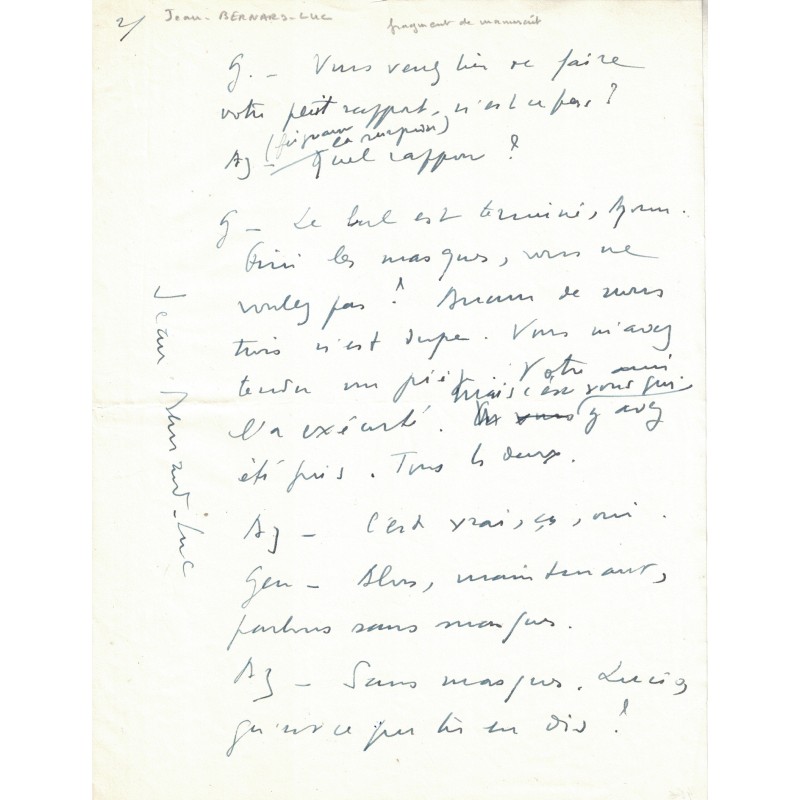 2/ Jean-BERNARD-LUC fragment de manuscrit
G. - Vous venez bien de faire
votre petit rapport, n'est ce pas ?
(feignant la surprise)
Az - Quel rapport ?
G - Le bal est terminé,
Fini les masques, vous ne
voulez pas ! Aucun de nous
trois n'est dupe. Vous m'avez
tendu un piège. Votre ami
mais c'est vous qui
l'a exécuté. y avez
été pris. Tous les deux.
Az - C'est vrai, ça, oui.
Gen - Alors, maintenant,
parlons sans masques.
Az - Sans masques.
qu'est ce que tu en dis ?
Jean Bernard-Luc